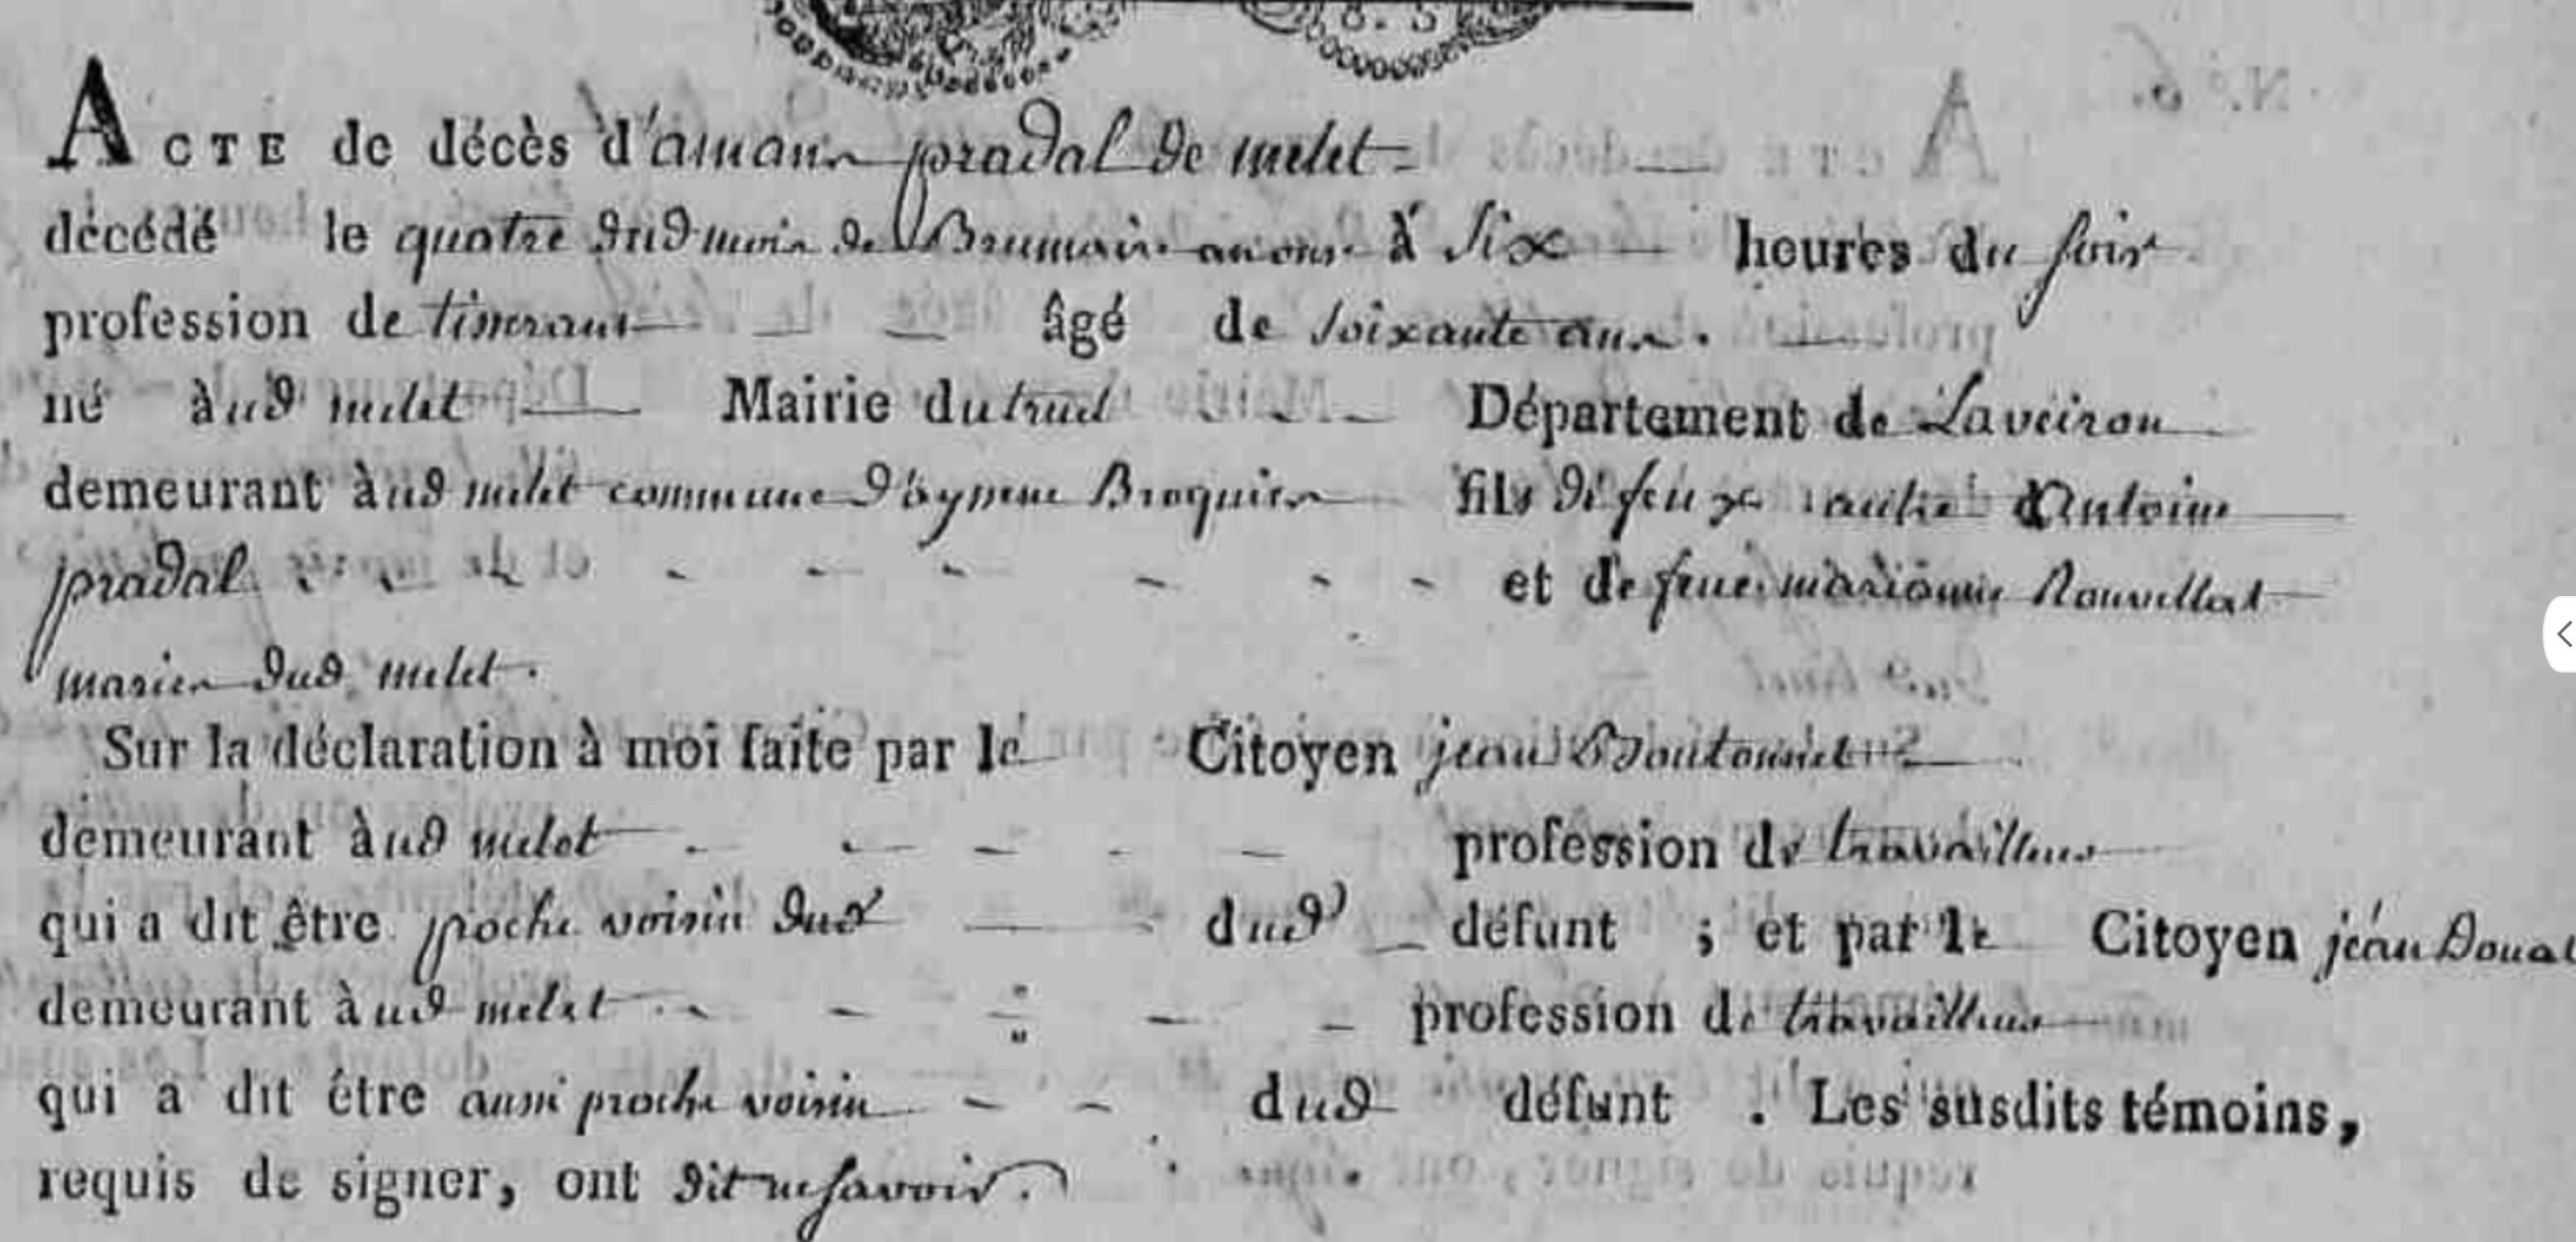 ACTE de décès d'amans pradal de melet
décédé le quatre dud mois de Brumaire an onze à six heures du soir
profession de tisserant âgé de soixante ans.
né à ud melet Mairie du truel Département de Laveiron
demeurant à ud melet commune d'ayssene Broquies fils de feux autre Antoine
pradal et de feue marianne
maries dud melet.
Sur la déclaration à moi faite par le Citoyen jean Boutonnet
demeurant à ud melet profession de travailleur
qui a dit être proche voisin dud dud défunt ; et par le Citoyen jean Doual
demeurant à ud melet profession de travailleur
qui a dit être aussi proche voisin dud défunt . Les susdits témoins,
requis de signer, ont dit ne savoir.